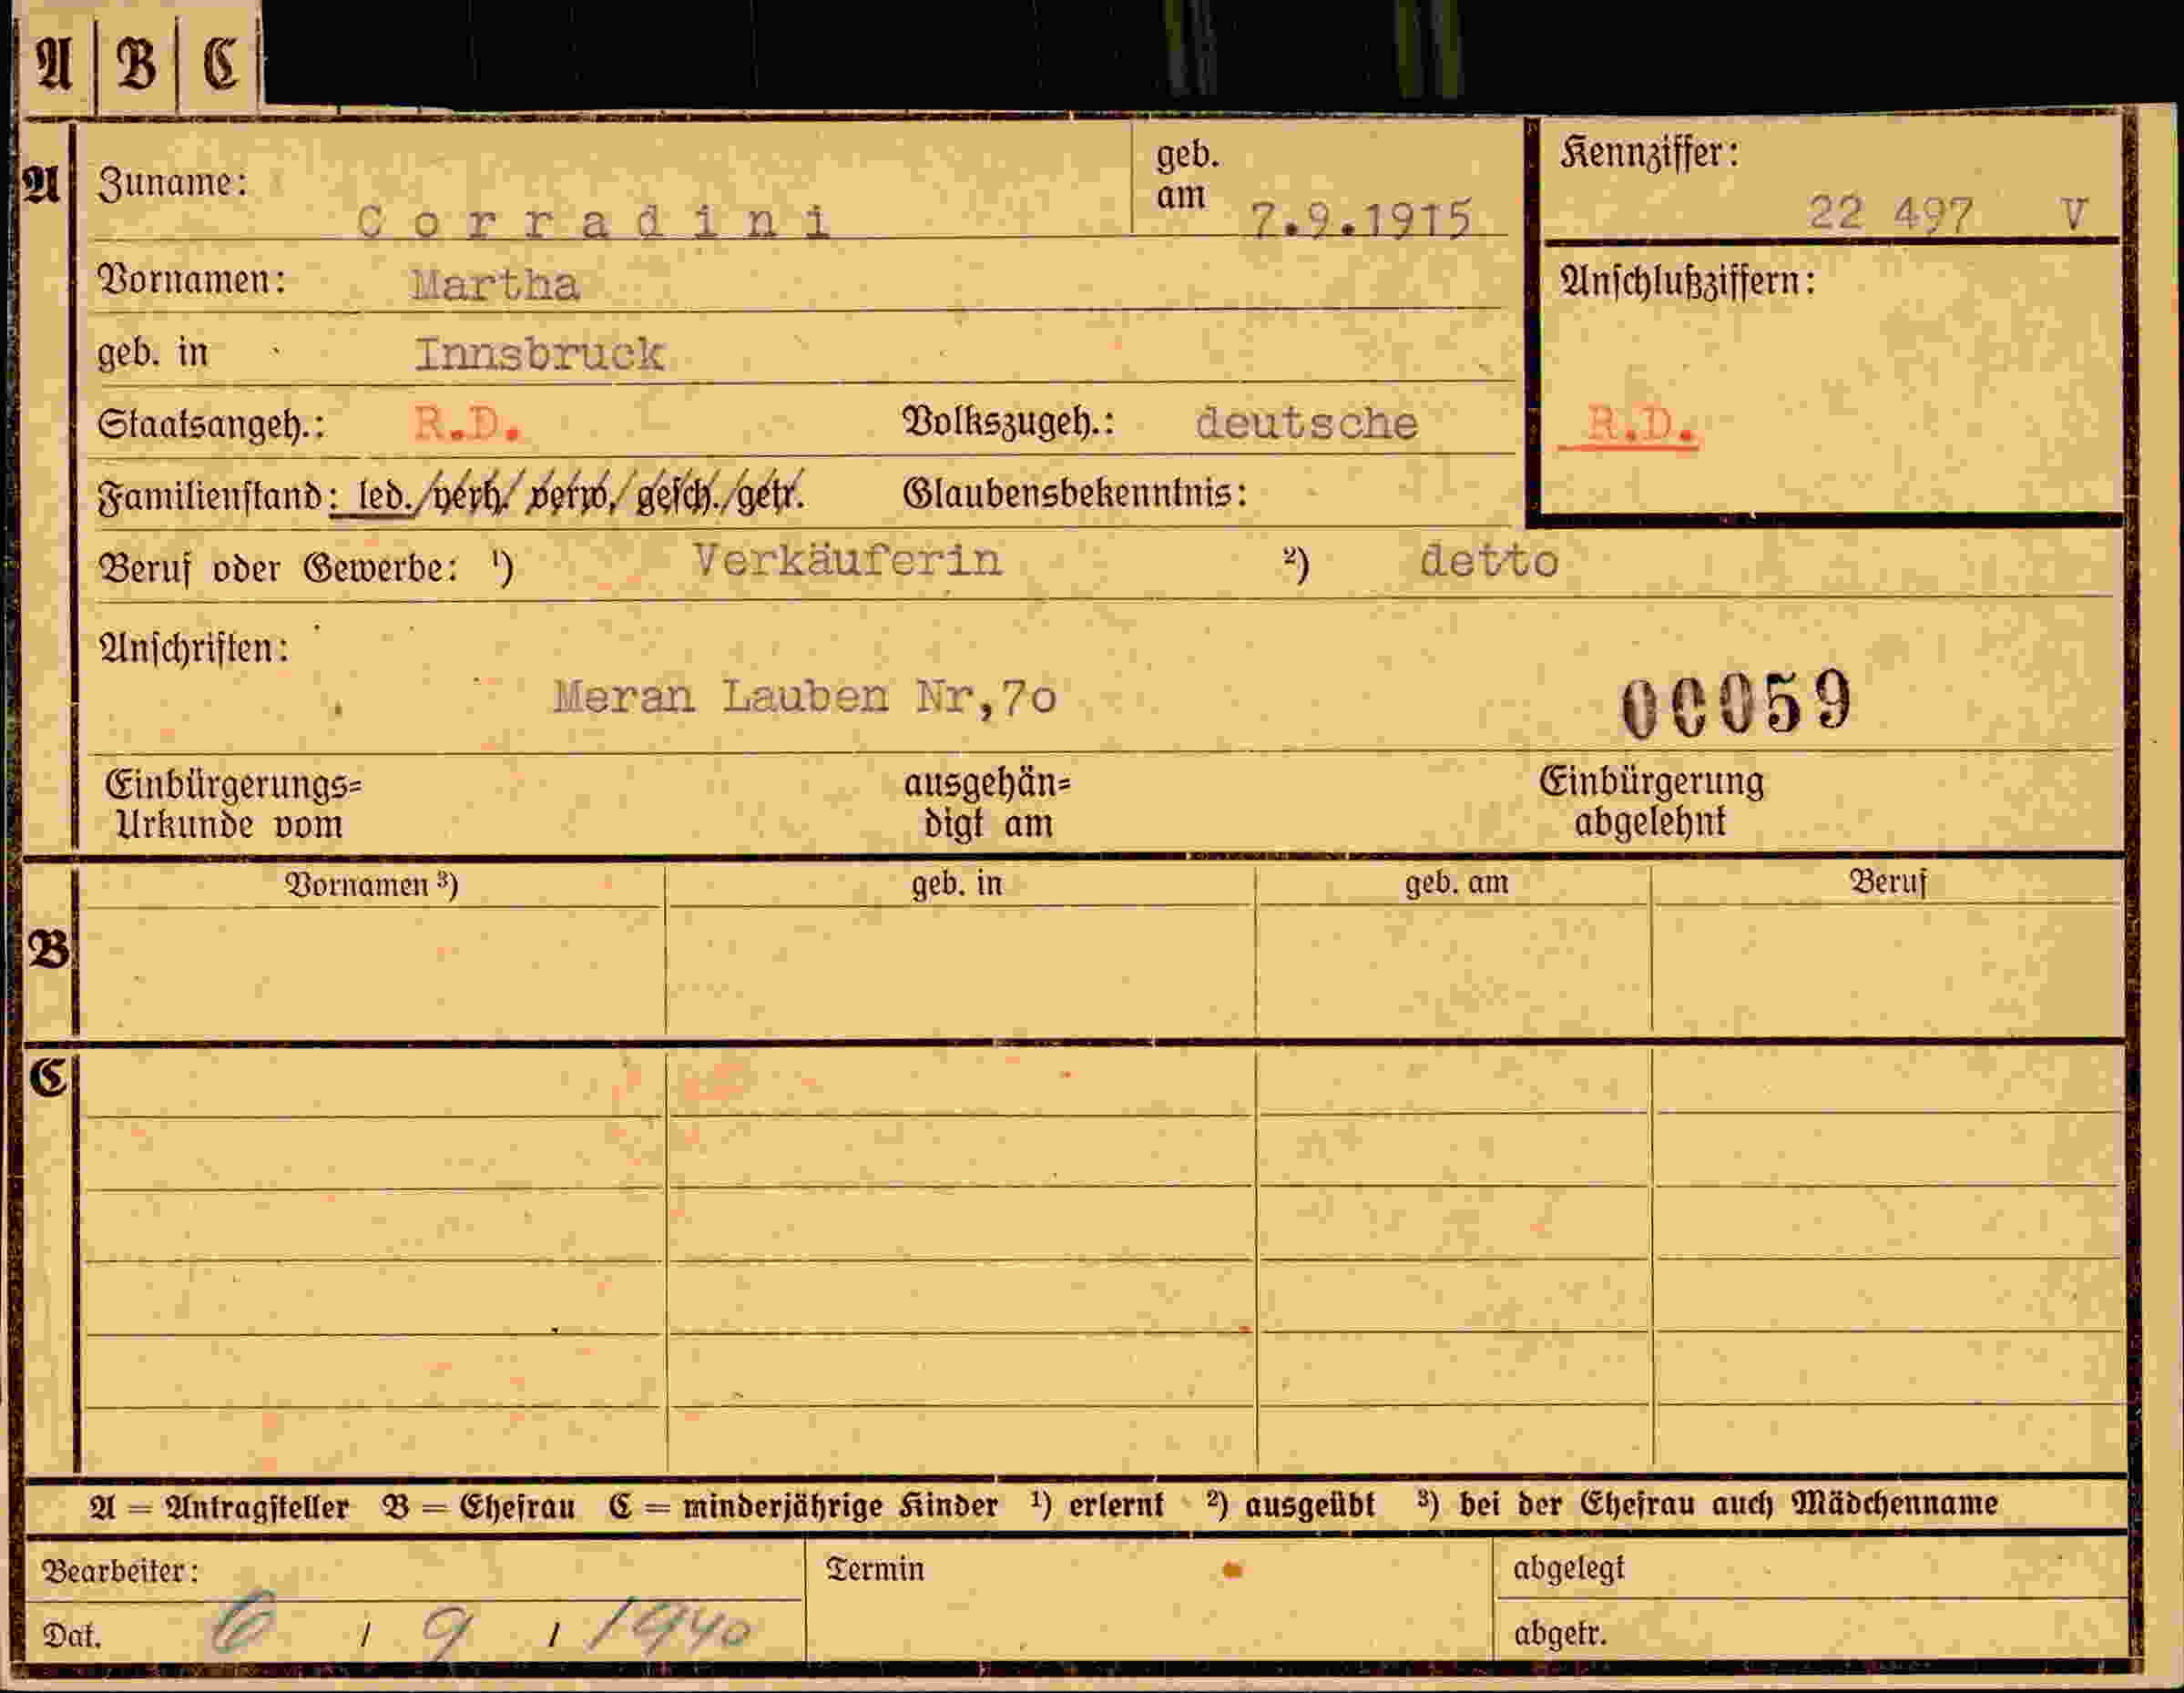 A B C
A Zuname: Corradini geb. am 7.9.1915 Kennziffer: 22 497 V
Vornamen: Martha Anschlußziffern:
geb. in Innsbruck
Staatsangeh.: R.D. Volkszugeh.: deutsche R.D.
Familienstand: led./verh./verw./gesch./getr. Glaubensbekenntnis:
Beruf oder Gewerbe: ¹) Verkäuferin ²) detto
Anschriften:
Meran Lauben Nr,7o 00059
Einbürgerungs= ausgehän= Einbürgerung
Urkunde vom digt am abgelehnt
Vornamen ³) geb. in geb. am Beruf
B
C
A = Antragsteller B = Ehefrau C = minderjährige Kinder ¹) erlernt ²) ausgeübt ³) bei der Ehefrau auch Mädchenname
Bearbeiter: Termin abgelegt
Dat. 6 / 9 / 1940 abgetr.